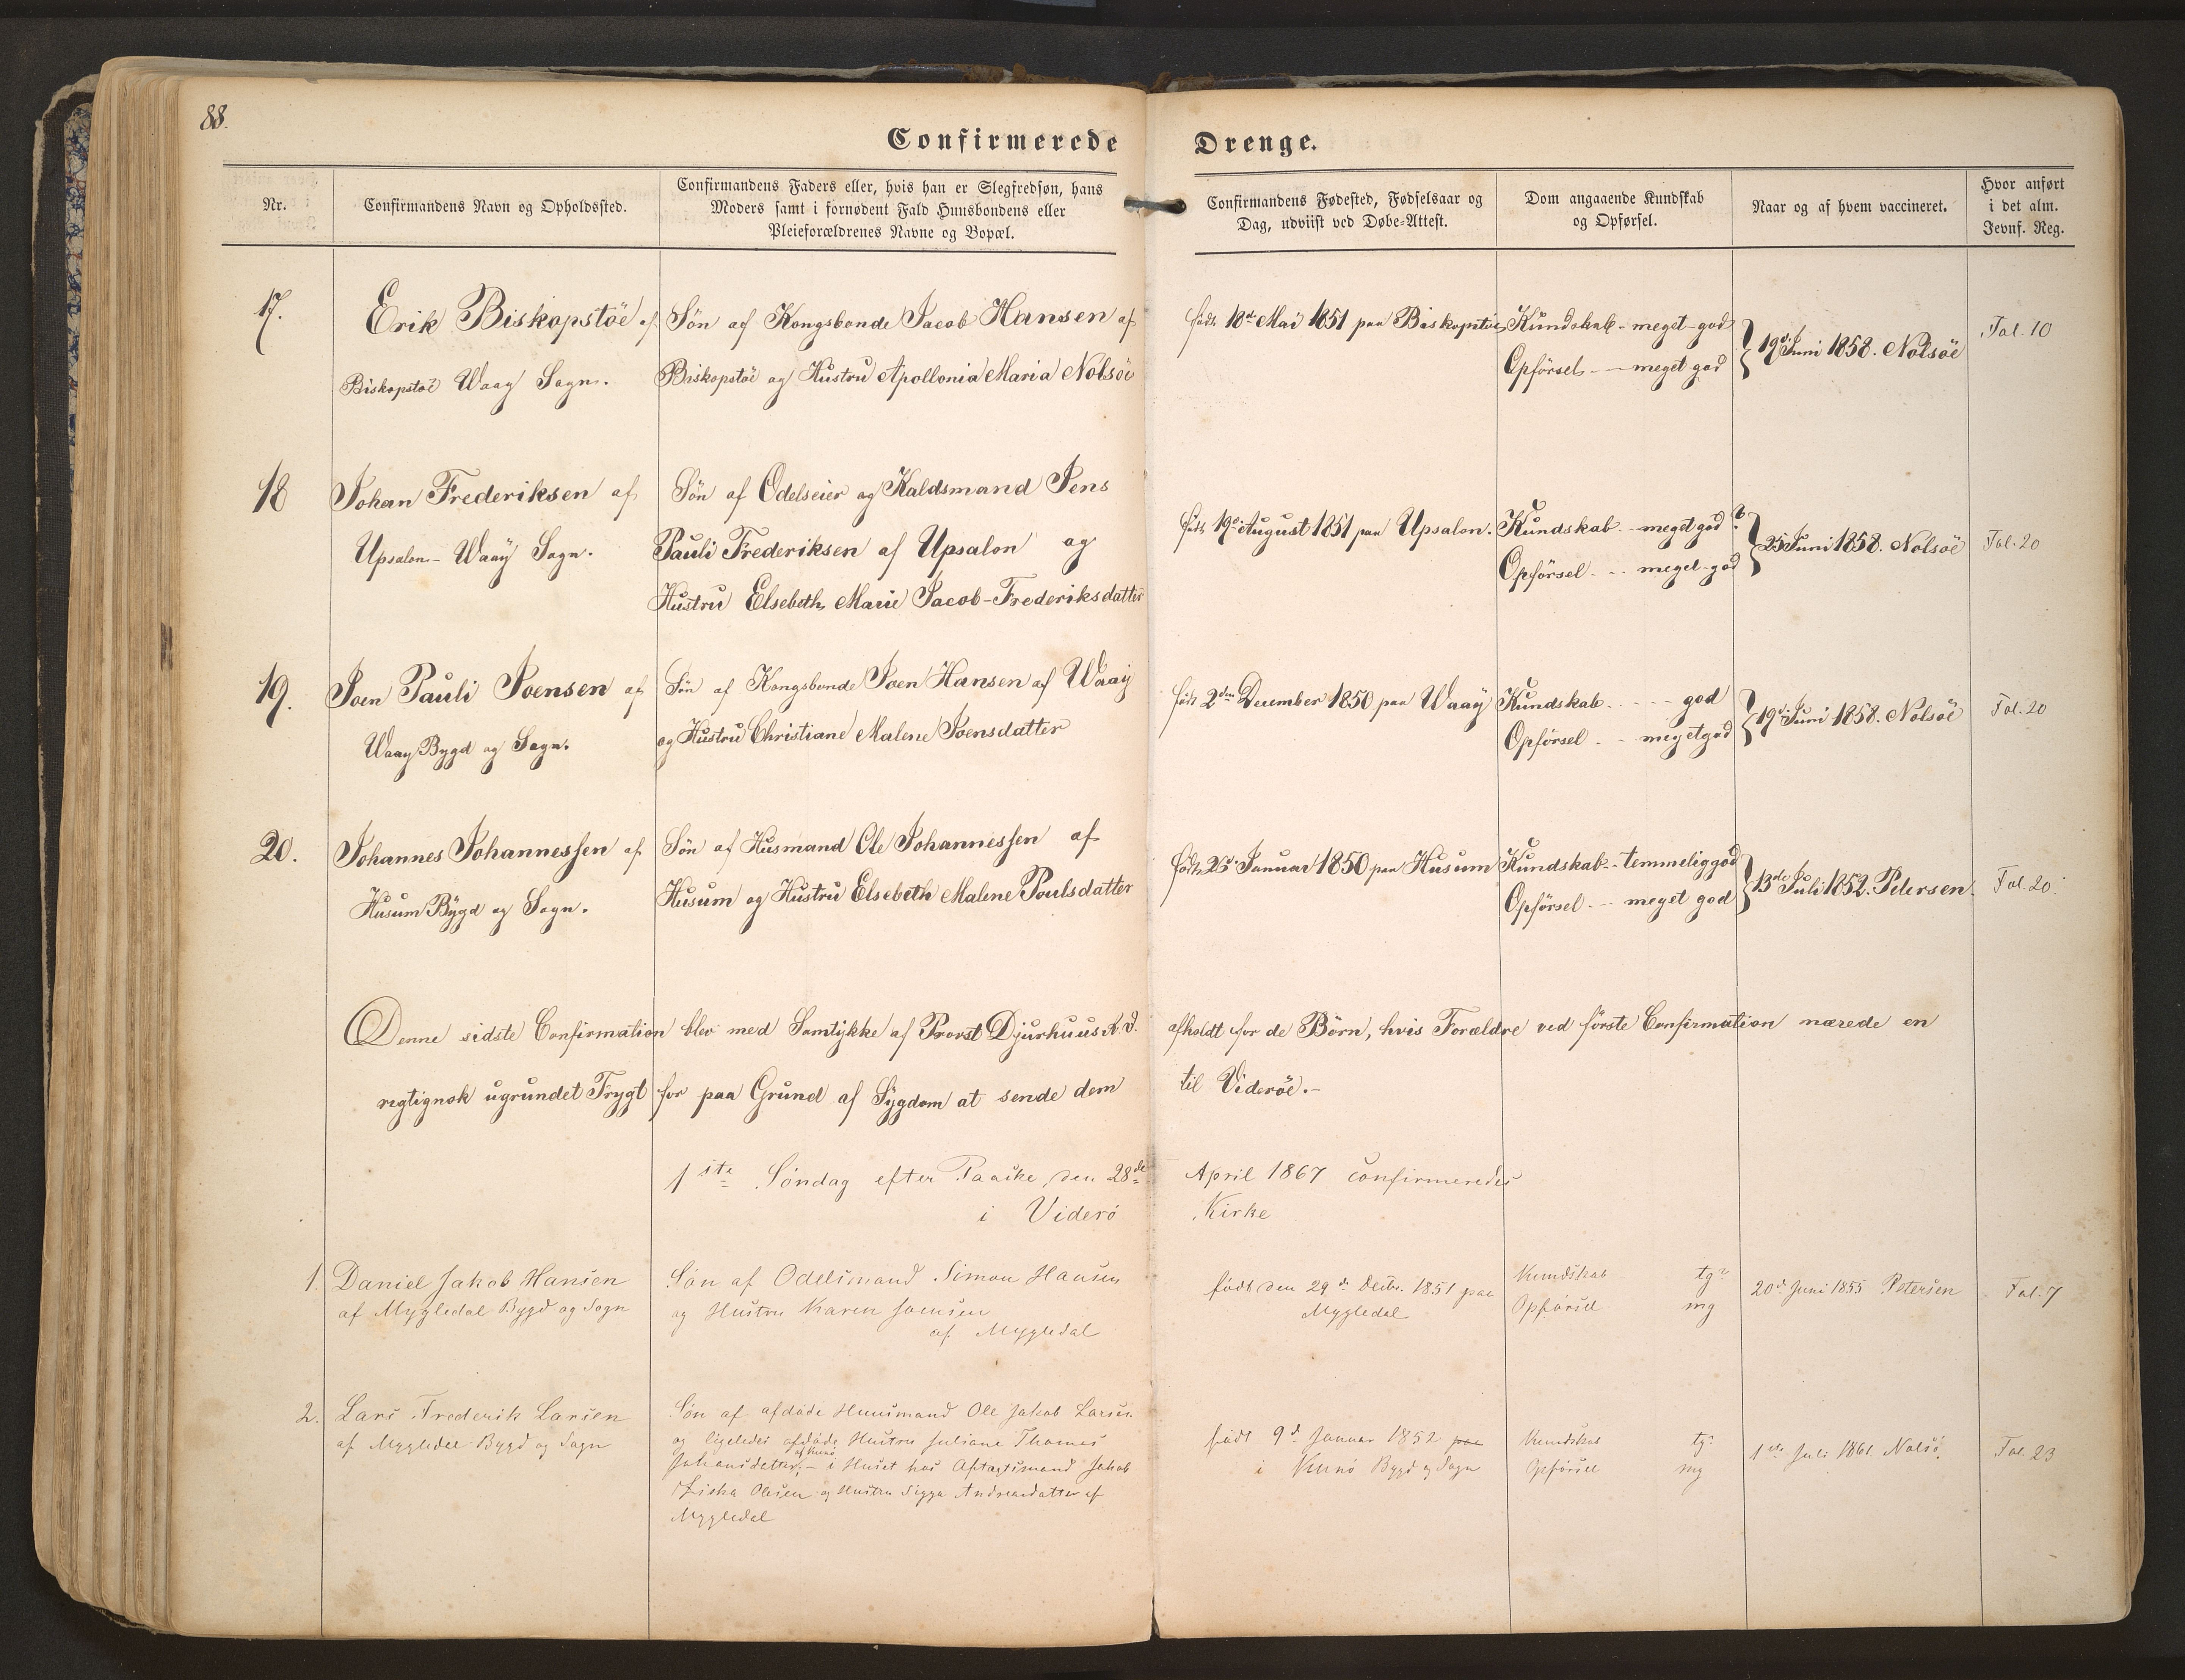 88.
Confirmerede Drenge.
Nr.
Confirmandens Navn og Opholdssted.
Confirmandens Faders eller, hvis han er Slegfredsøn, hans
Moders samt i fornødent Fald Huusbondens eller
Pleieforældrenes Navne og Bopæl.
Confirmandens Fødested, Fødselsaar og
Dag, udviist ved Døbe-Attest.
Dom angaaende Kundskab
og Opførsel.
Naar og af hvem vaccineret.
Hvor anført
i det alm.
Jevnf. Reg.
17.
Erik Biskopstöe af
Biskopstöe Waay Sogn.
Søn af Kongsbonde Jacob Hansen af
Biskopstöe og Hustrü Apollonia Maria Nolsöe
født 18de Mai 1851 paa Biskopstöe
Kündskab - meget god
Opförsel - meget god
19de Juni 1858. Nolsöe
Fol. 10
18
Johan Frederiksen af
Upsalon - Waay Sogn.
Søn af Odelseier og Kaldsmand Jens
Pauli Frederiksen af Upsalon og
Hustrü Elsebeth Marie Jacob-Frederiksdatter
født 19de August 1851 paa Upsalon.
Kundskab - meget god ?
Opförsel - meget god
25 Juni 1858. Nolsöe
Fol. 20
19.
Joen Pauli Joensen af
Waay Bygd og Sogn.
Søn af Kongsbonde Joen Hansen af Waay
og Hustrü Christiane Malene Joensdatter
født 2den December 1850 paa Waay
Kundskab - god
Opförsel - meget god
19de Juni 1858. Nolsöe
Fol. 20
20.
Johannes Johannessen af
Husum Bygd og Sogn.
Søn af Husmand Ole Johannessen af
Husum og Hustrü Elsebeth Malene Poulsdatter
født 25 Januar 1850 paa Husum
Kundskab - temmelig god
Opförsel - meget god
13de Juli 1852. Petersen
Fol. 20.
Denne sidste Confirmation blev med Samtykke af Provst Djurhuus R. D. afholdt for de Börn, hvis Forældre ved förste Confirmation nærede en
rigtignok ugrundet Frygt for paa Grund af Sygdom at sende dem til Videröe.-
1ste Søndag efter Paaske, den 28de April 1867 confirmeredes
i Viderö Kirke
1.
Daniel Jakob Hansen
af Mygledal Bygd og Sogn
Søn af Odelsmand Simon Hansen
og Hustru Karen Joensen
af Mygledal
født den 29de Decbr. 1851 paa
Mygledal
Kundskab tg
Opførsel mg
20de Juni 1855 Petersen
Fol. 7
2.
Lars Frederik Larsen
af Mygledal Bygd og Sogn
Søn af afdöde Huusmand Ole Jakob Larsen
og ligeledes afdöde Hustru Juliane Thomas
Johansdatter, af Kunö - i Huset hos Aftægtsmand Jakob
Ziska Olesen og Hustru Sigga Andreasdatter af
Mygledal
født 9d Januar 1852 paa
i Kunö Bygd og Sogn
Kundskab tg
Opførsel mg
1ste Juli 1861 Nolsö.
Fol. 23